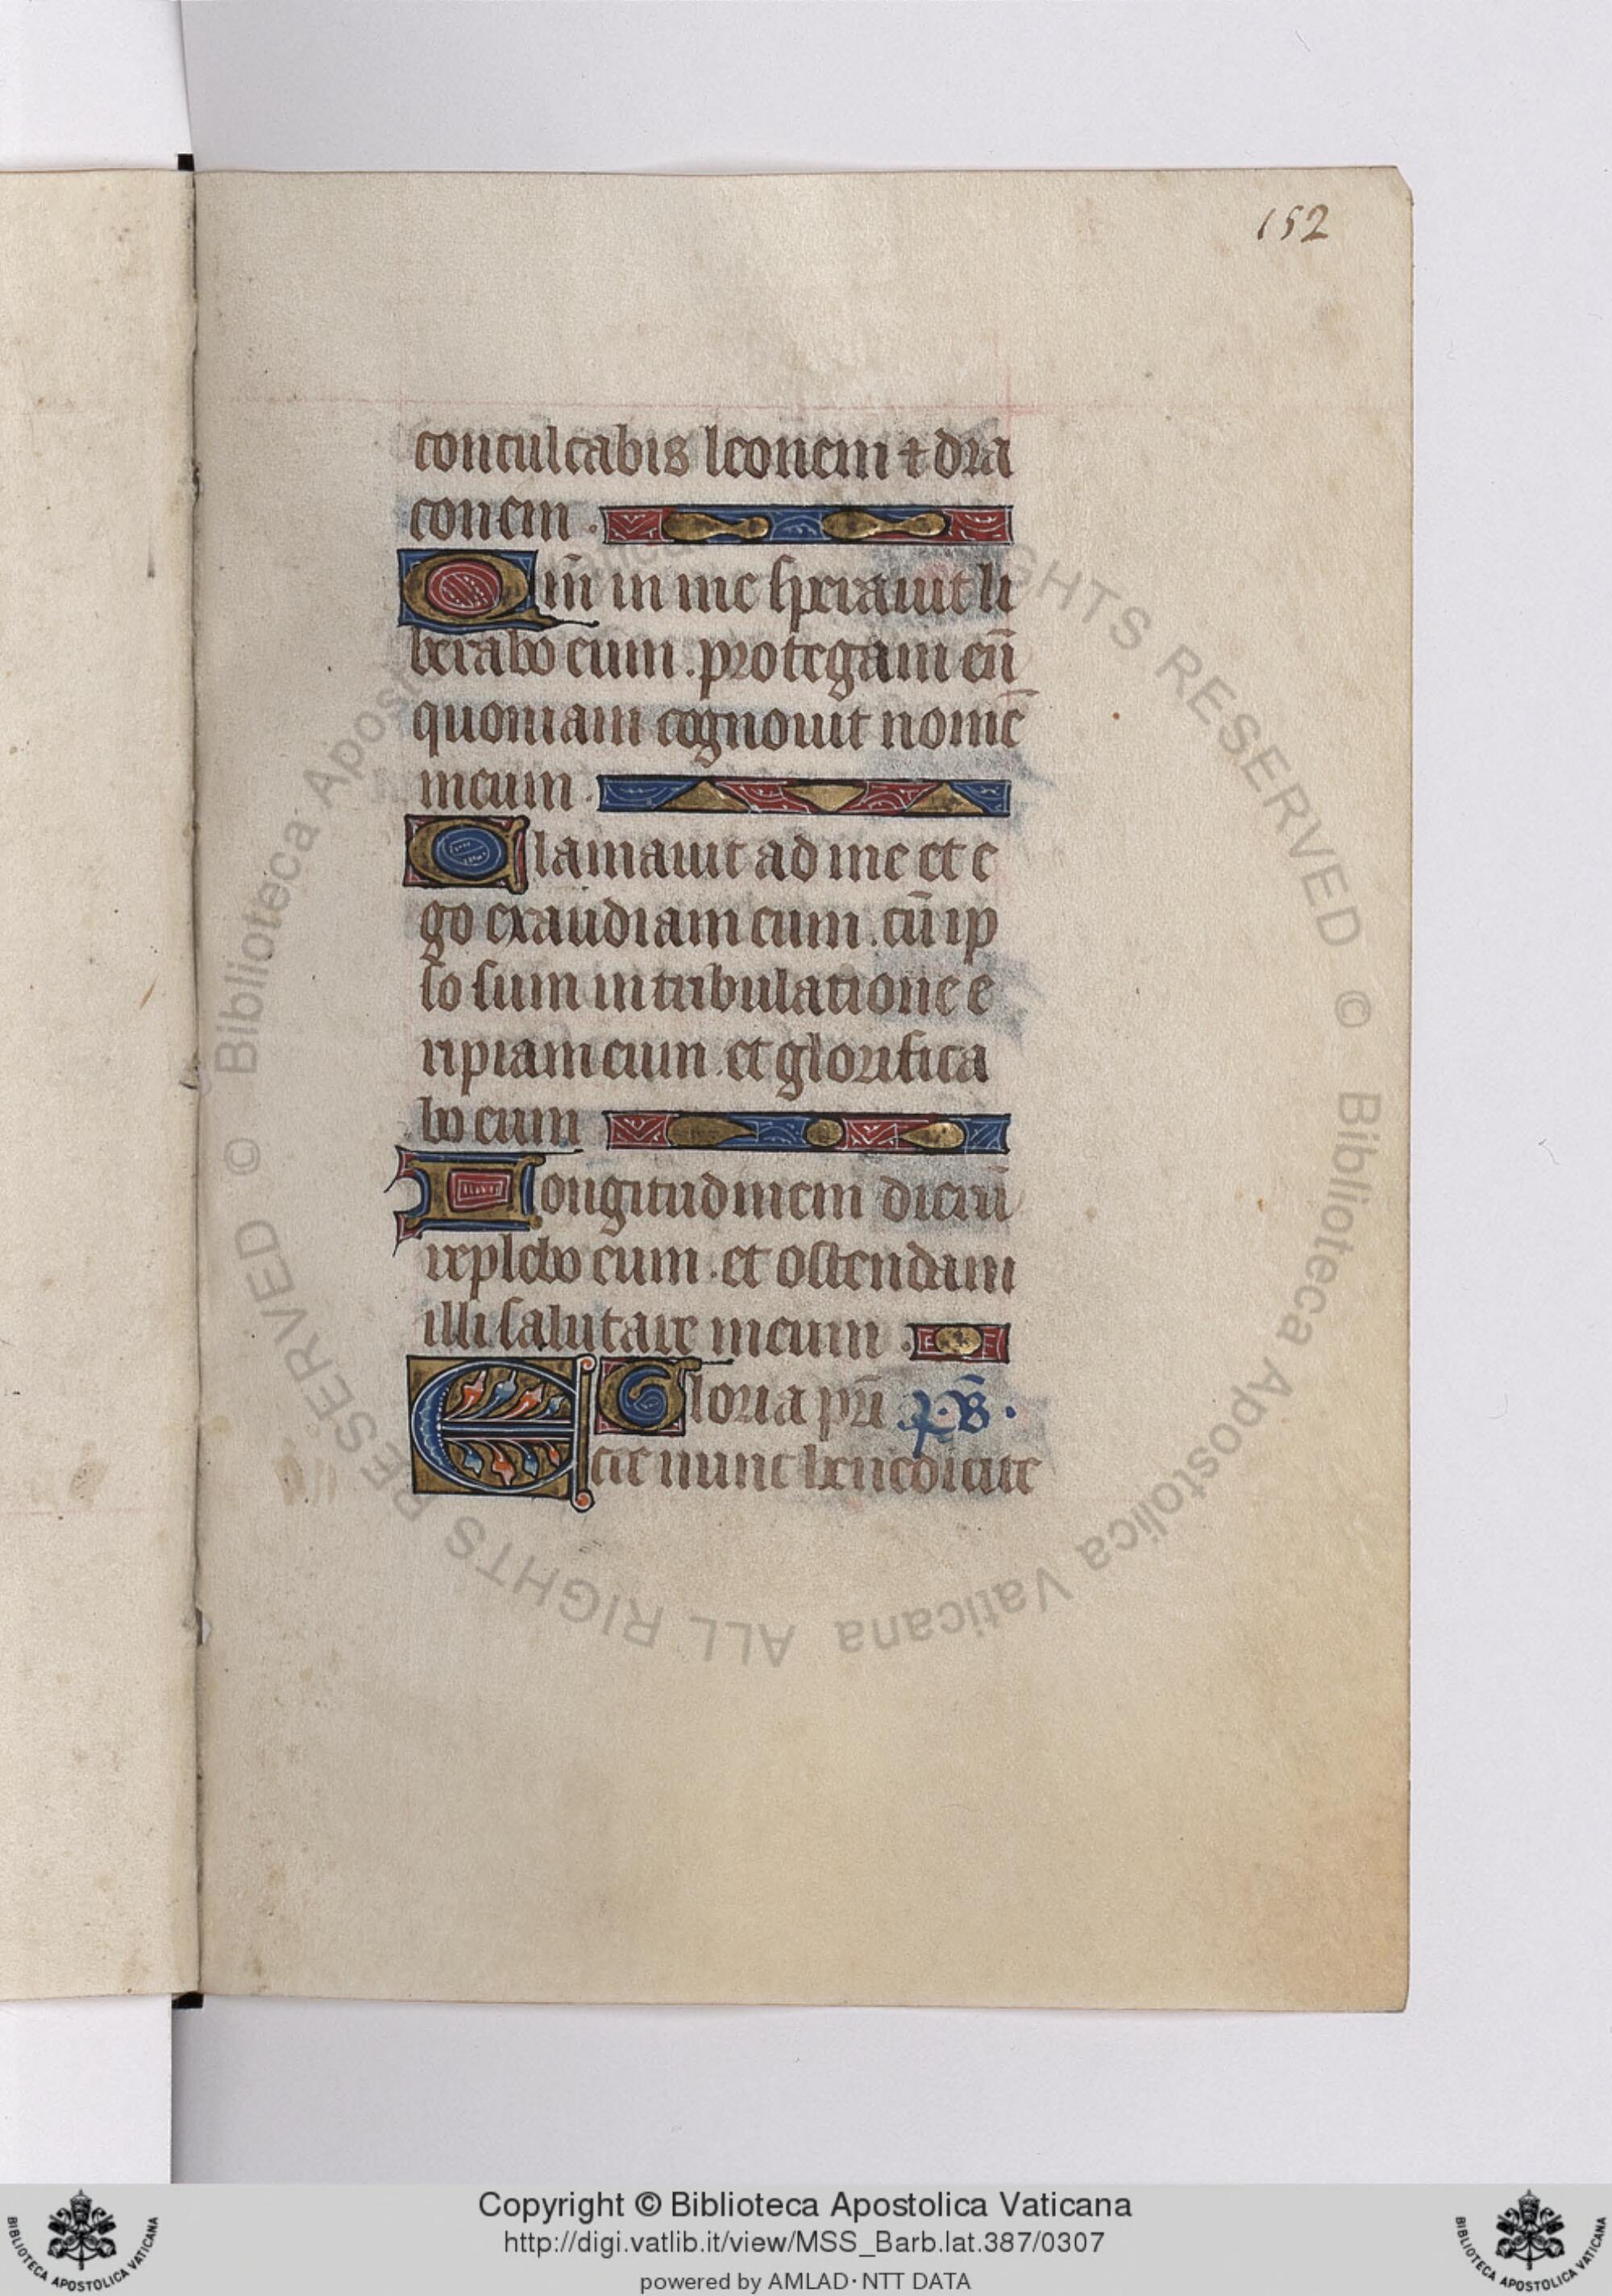 152
conculcabis leonem ⁊ dra
conem .
Qm̄ in me sperauit li
berabo eum . protegam eū
quoniam cognouit nomē
meum .
Clamauit ad me et e
go exaudiam eum . cū ip
so sum in tribulatione e
ripiam eum . et glorifica
bo eum
Longitudinem dierū
replebo eum . et ostendam
illi salutare meum .
Gloria pr̄i . p̄s .
Ecce nunc benedicite
Copyright © Biblioteca Apostolica Vaticana
http://digi.vatlib.it/view/MSS_Barb.lat.387/0307
powered by AMLAD·NTT DATA
© Biblioteca Apostolica Vaticana ALL RIGHTS RESERVED
BIBLIOTECA APOSTOLICA VATICANA
BIBLIOTECA APOSTOLICA VATICANA